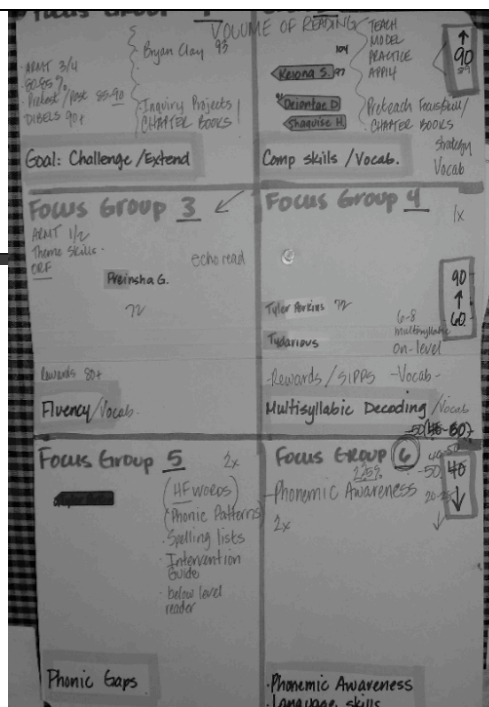 Focus Group 1
VOLUME OF READING
Bryan Clay 93
ARMT 3/4
80-85%
Pretest/Post 85-90
DIBELS 90+
Inquiry Projects
CHAPTER BOOKS
Goal: Challenge/Extend
TEACH
MODEL
PRACTICE
APPLY
104
Kesona S. 97
Deiontae D
Shaquise H.
Preteach Focus Skill/
CHAPTER BOOKS
strategy
Vocab
90
Comp skills/Vocab.
Focus Group 3
ARMT 1/2
Theme Skills-
ORF
echo read
Preinsha G.
72
Rewards 80+
Fluency/Vocab-
Focus Group 4
1x
Tyler Perkins 72
Tydarious
90
60
6-8
multisyllabic
on-level
-Rewards/SIPPS -Vocab-
Multisyllabic Decoding/Vocab
Focus Group 5
2x
(HF WORDS)
(Phonic Patterns)
·Spelling lists
·Intervention
Guide
·below level
reader
Phonic Gaps
Focus Group 6
-Phonemic Awareness
2x
-50
40
·Phonemic Awareness
·Language skills